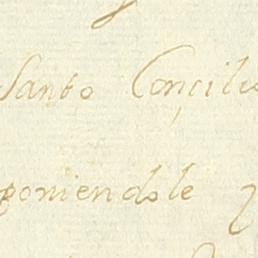 Santo Conçiliu
poniendole